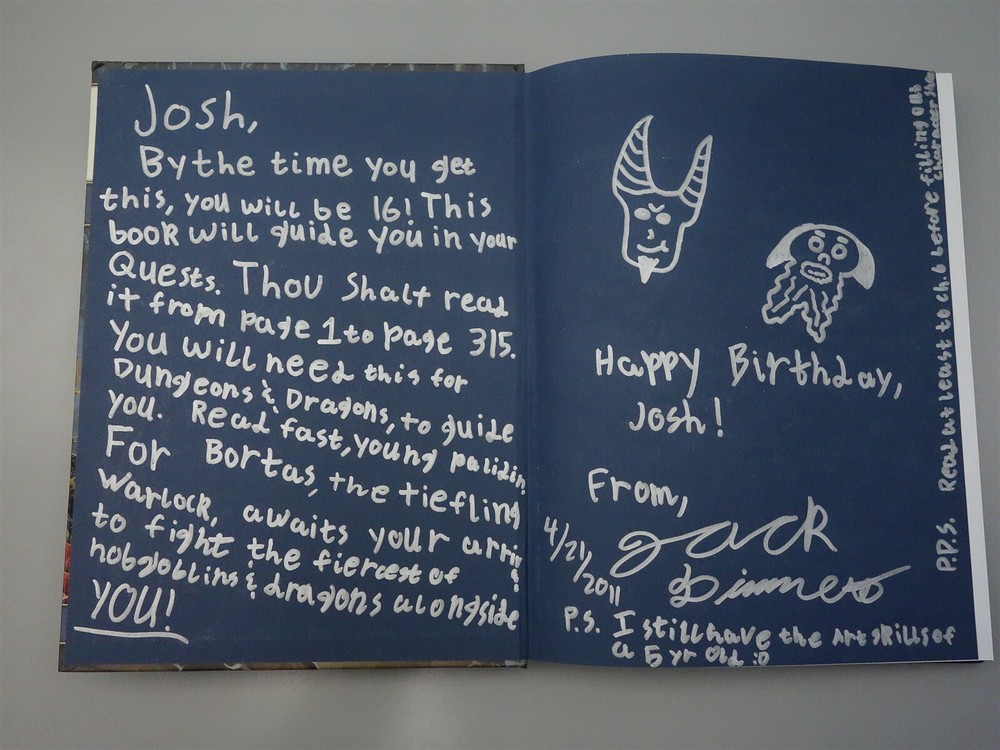 Josh,
By the time you get
this, you will be 16! This
book will guide you in your
Quests. Thou Shalt read
it from page 1 to page 315.
You will need this for
Dungeons & Dragons, to guide
you. Read fast, young palidin
For Bortas, the tiefling
Warlock, awaits your
to fight the fiercest of
hobgoblins & dragons alongside
YOU!
Happy Birthday,
Josh!
From,
Jack
4/21/2011
P.S. I still have the Art skills of
a 5 yr old :o
P.P.S. Read at least to ch. 6 before filling out
character